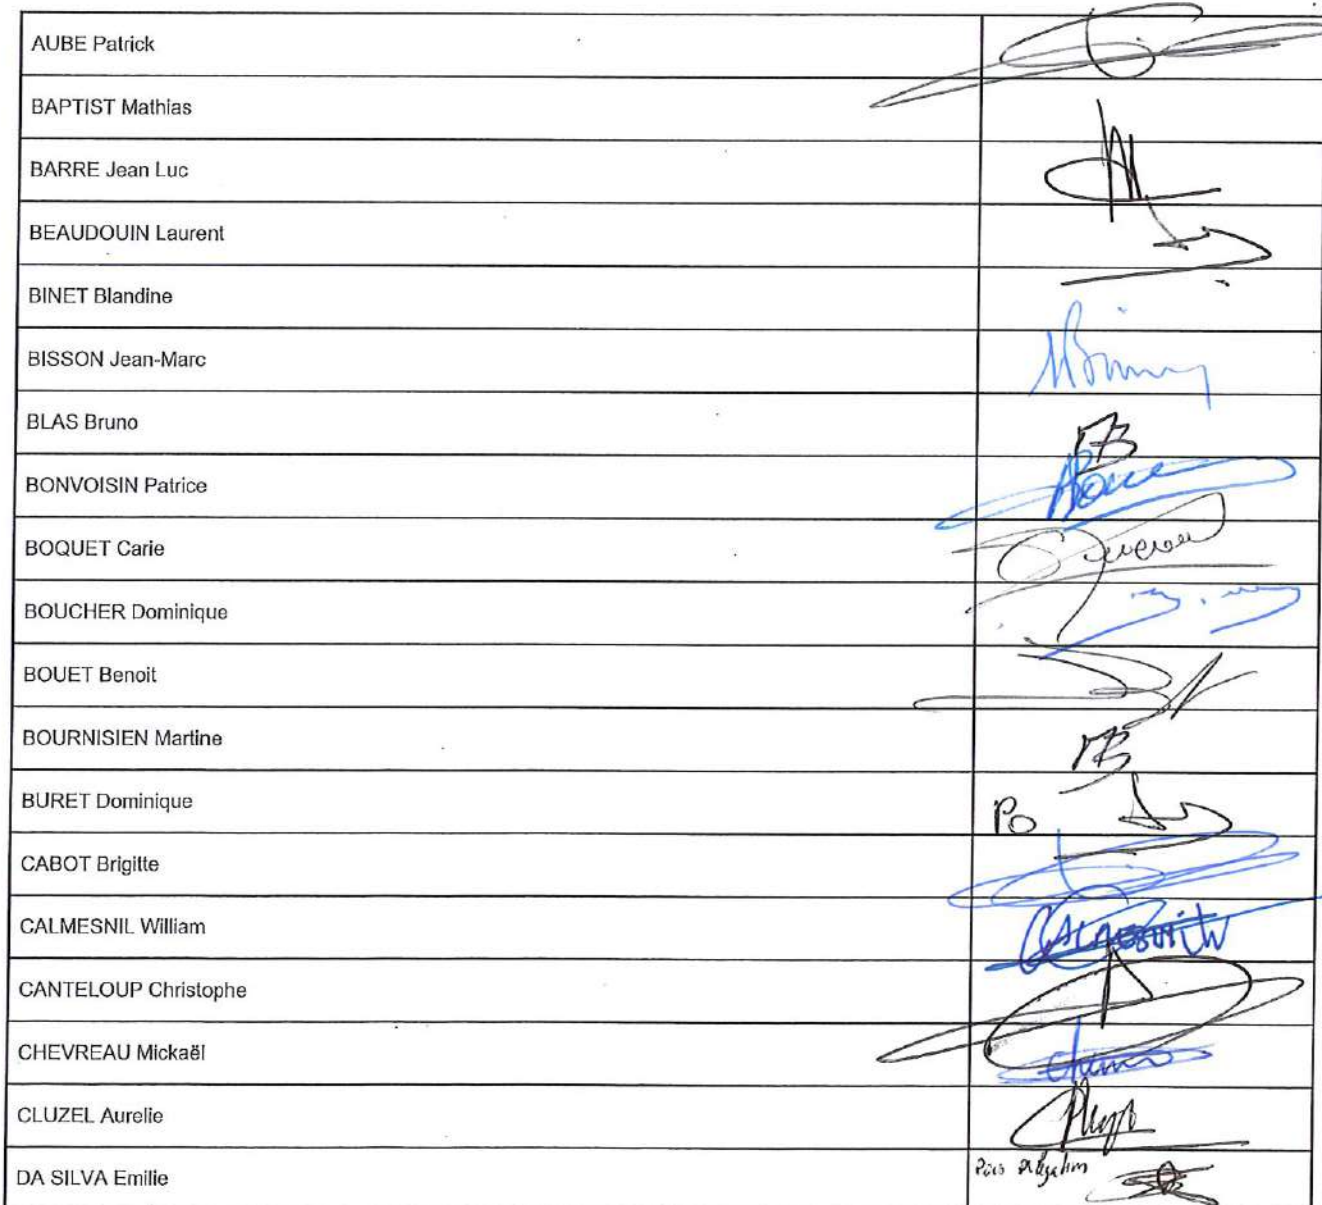 AUBE Patrick
BAPTIST Mathias
BARRE Jean Luc
BEAUDOUIN Laurent
BINET Blandine
BISSON Jean-Marc
BLAS Bruno
BONVOISIN Patrice
BOQUET Carie
BOUCHER Dominique
BOUET Benoit
BOURNISIEN Martine
BURET Dominique PO
CABOT Brigitte
CALMESNIL William
CANTELOUP Christophe
CHEVREAU Mickaël
CLUZEL Aurelie
DA SILVA Emilie